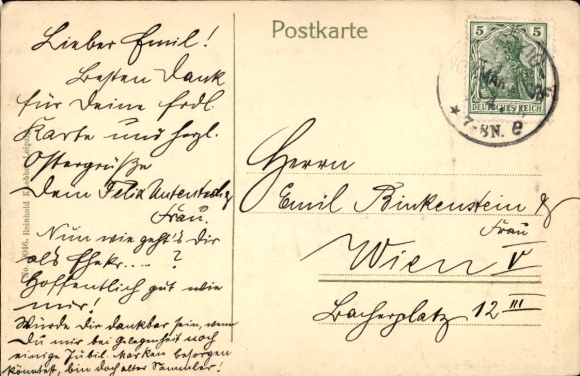 Postkarte
Lieber Emil!
Besten Dank
für Deine frdl.
Karte und herzl.
Ostergrüße
Dein Felix
Frau.
Nun wie geht's Dir
als Ehekr....?
Hoffentlich gut wie
mir!
Würde Dir dankbar sein, wenn
Du mir bei Gelegenheit noch
einige Jubil. Marken besorgen
könntest, bin doch alter Sammler!
Herrn
Emil Binkenstein &
Frau
Wien V
Bacherplatz 12 III
5 5
DEUTSCHES REICH
MAI
7-8N.
e
No. Reinhold